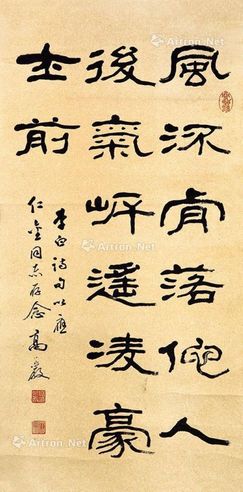 風流肯落他人
後氣岸遙凌豪
士前
李白詩句以應
仁同志存念 高
Artron.Net
Artron.Net